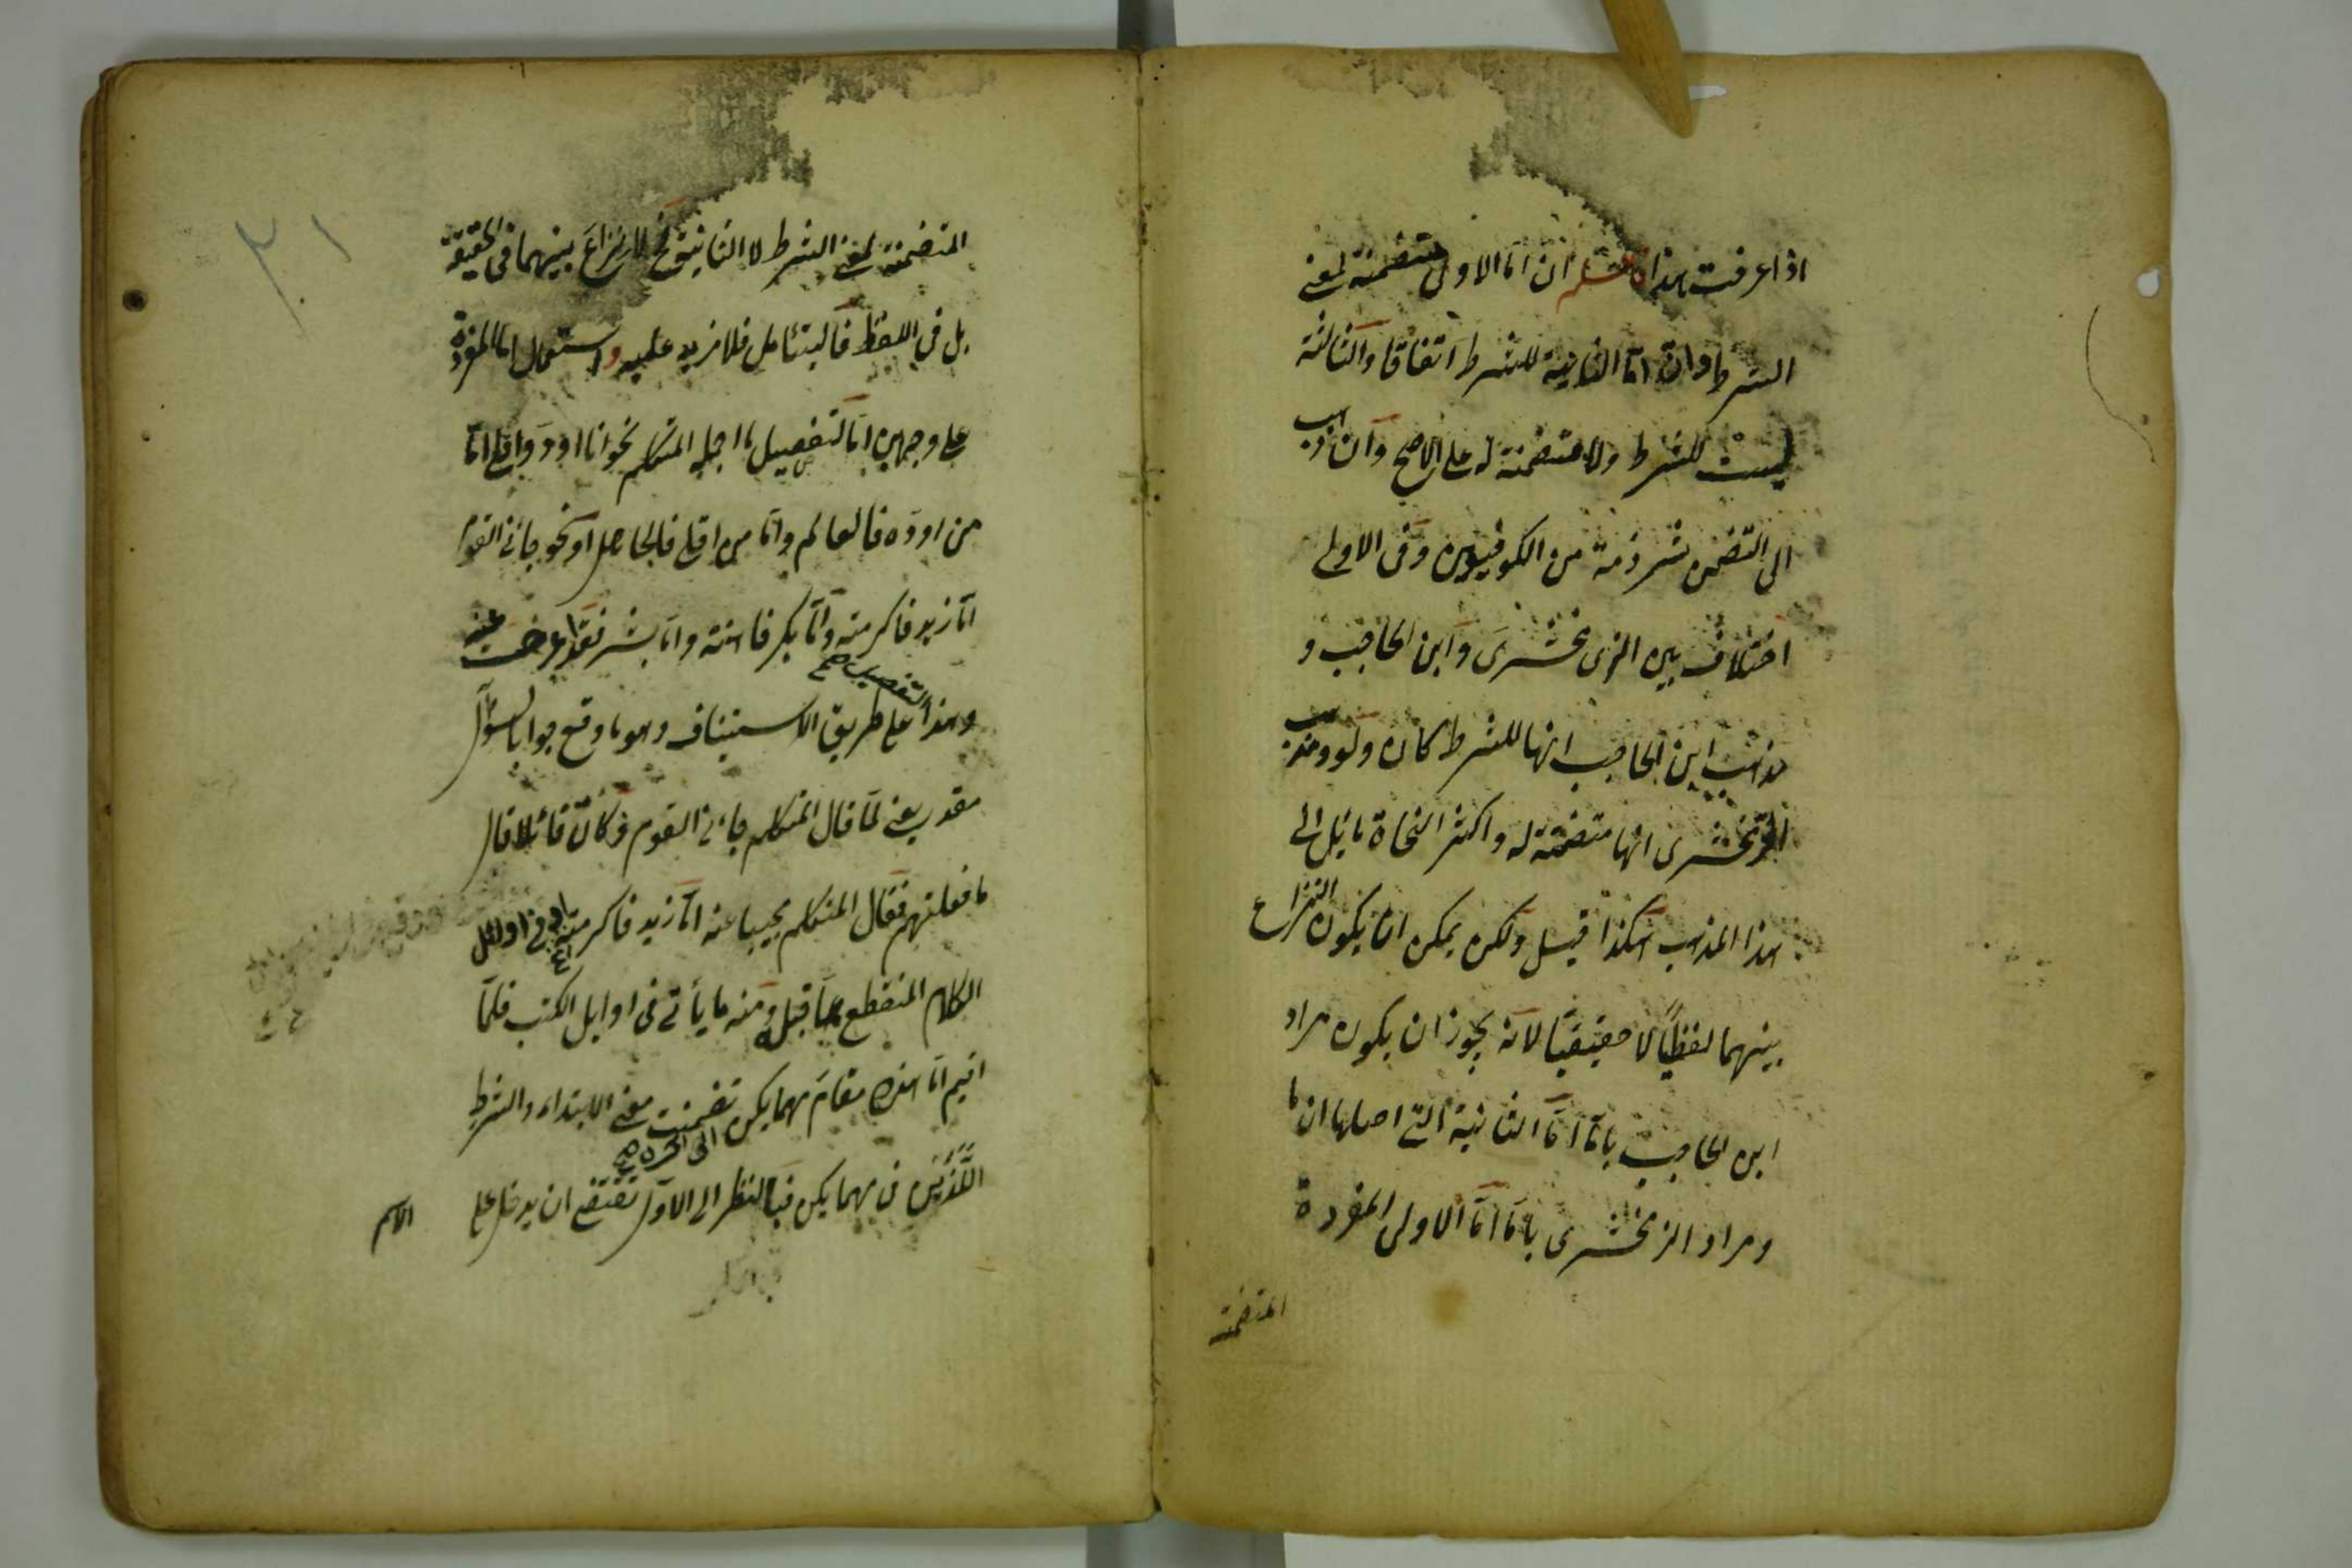 اذا عرفت هذا فاعلم ان اما الاولى متضمنة لمعنى
الشرط وان اما الثانية للشرط اتفاقا والثالثة
ليست للشرط ولا متضمنة له على الاصح وان ذهب
الى التضمن شرذمة من الكوفيين وفى الاولى
اختلاف بين الزمخشرى وابن الحاجب و
مذهب ابن الحاجب انها للشرط كان ولو ومذهب
الزمخشرى انها متضمنة له واكثر النحاة مائل الى
هذا المذهب هكذا قيل ولكن يمكن ان يكون النزاع
بينهما لفظيا لا حقيقيا لانه يجوز ان يكون مراد
ابن الحاجب باما اما الثانية التى اصلها ان ما
ومراد الزمخشرى باما اما الاولى المفردة
المتضمنة
٣١
المتضمنة لمعنى الشرط لا الثانية فح لا نزاع بينهما فى الحقيقة
بل فى اللفظ فاليتأمل فلا مزيد عليه واستعمال اما المفردة
على وجهين اما لتفصيل ما اجمله المتكلم نحو انا اود واقلع اما
من اوده فالعالم واما من اقلع فالجاهل او نحو جائنى القوم
اما زيد فاكرمته واما بكر فاهنته واما بشر فقد اعرضت عنه
وهذا التفصيل صح على طريق الاستيناف وهو ما وقع جوابا لسؤال
مقدر يعنى لما قال المتكلم جائنى القوم فكان قائلا قال
ما فعلت بهم فقال المتكلم مجيبا عنه اما زيد فاكرمته او فى اوائل
الكلام المنقطع عما قبله ومنه ما يأتى فى اوايل الكتب فلما
اقيم اما هذه مقام مهما يكن الى اخره صح تضمنت معنى الابتداء والشرط
اللذين فى مهما يكن فبالنظر الى الاول تقتضى ان يدخل على
الاسم